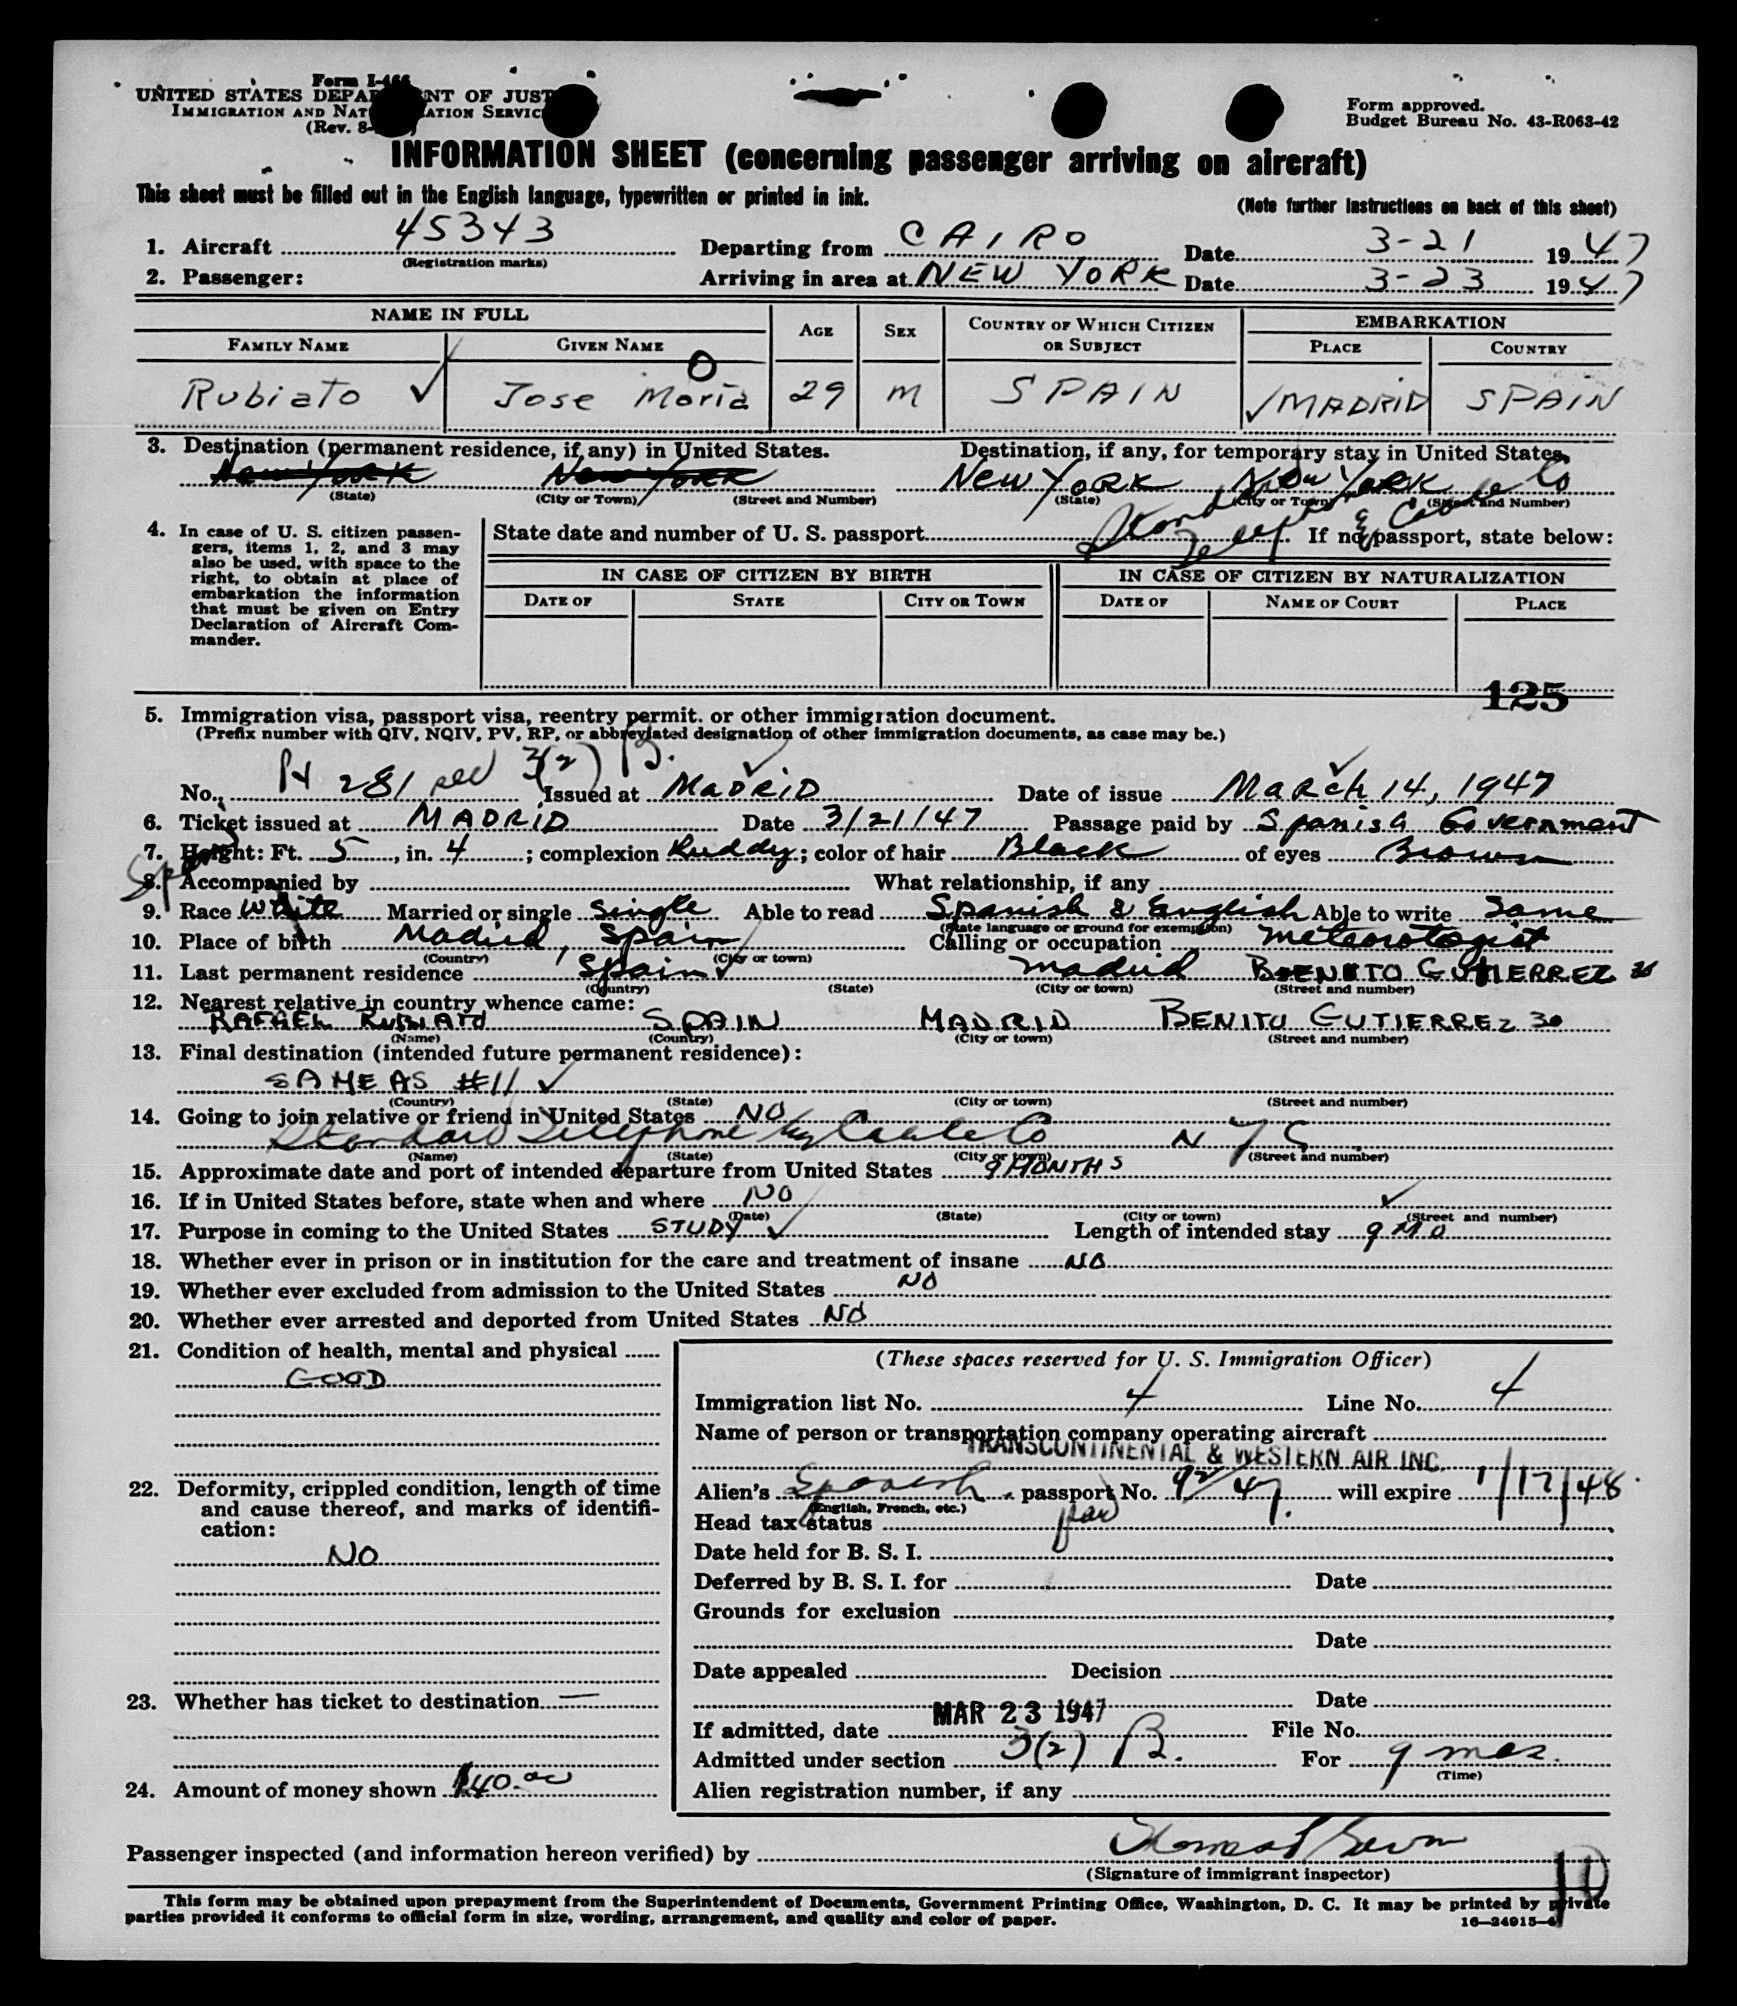 Form I-466
UNITED STATES DEPARTMENT OF JUSTICE
IMMIGRATION AND NATURALIZATION SERVICE
(Rev. 8-
Form approved.
Budget Bureau No. 43-R063-42
INFORMATION SHEET (concerning passenger arriving on aircraft)
This sheet must be filled out in the English language, typewritten or printed in ink.
(Note further instructions on back of this sheet)
1. Aircraft 45343 Departing from CAIRO Date 3-21 1947
(Registration marks)
2. Passenger: Arriving in area at NEW YORK Date 3-23 1947
NAME IN FULL AGE SEX COUNTRY OF WHICH CITIZEN OR SUBJECT EMBARKATION
FAMILY NAME GIVEN NAME PLACE COUNTRY
Rubiato ✓ Jose Maria 29 M SPAIN ✓MADRID SPAIN
3. Destination (permanent residence, if any) in United States. Destination, if any, for temporary stay in United States.
New York New York New York New York
(State) (City or Town) (Street and Number) (State) (City or Town) (Street and Number)
Standard Telephone & Cable Co
4. In case of U. S. citizen passengers, items 1, 2, and 3 may also be used, with space to the right, to obtain at place of embarkation the information that must be given on Entry Declaration of Aircraft Commander.
State date and number of U. S. passport If no passport, state below:
IN CASE OF CITIZEN BY BIRTH IN CASE OF CITIZEN BY NATURALIZATION
DATE OF STATE CITY OR TOWN DATE OF NAME OF COURT PLACE
125
5. Immigration visa, passport visa, reentry permit, or other immigration document.
(Prefix number with QIV, NQIV, PV, RP, or abbreviated designation of other immigration documents, as case may be.)
No. 281 3(2) B. Issued at MADRID Date of issue MARch 14, 1947
6. Ticket issued at MADRID Date 3/21/47 Passage paid by Spanish Government
7. Height: Ft. 5, in. 4; complexion Ruddy; color of hair Black of eyes Brown
8. Accompanied by What relationship, if any
9. Race White Married or single Single Able to read Spanish & English Able to write Same
(State language or ground for exemption)
10. Place of birth Madrid, Spain Calling or occupation meteorologist
(Country) (City or town)
11. Last permanent residence Spain ✓ Madrid BENITO GUTIERREZ 30
(Country) (State) (City or town) (Street and number)
12. Nearest relative in country whence came:
RAFAEL RUBIATO SPAIN MADRID BENITO GUTIERREZ 30
(Name) (Country) (City or town) (Street and number)
13. Final destination (intended future permanent residence):
SAME AS #11 ✓
(Country) (State) (City or town) (Street and number)
14. Going to join relative or friend in United States NO
Standard Telephone & Cable Co N Y C
(Name) (State) (City or town) (Street and number)
15. Approximate date and port of intended departure from United States 9 MONTHS
16. If in United States before, state when and where NO ✓
(Date) (State) (City or town) (Street and number)
17. Purpose in coming to the United States STUDY ✓ Length of intended stay 9 MO
18. Whether ever in prison or in institution for the care and treatment of insane NO
19. Whether ever excluded from admission to the United States NO
20. Whether ever arrested and deported from United States NO
21. Condition of health, mental and physical
GOOD
22. Deformity, crippled condition, length of time and cause thereof, and marks of identification:
NO
23. Whether has ticket to destination —
24. Amount of money shown $40.00
(These spaces reserved for U. S. Immigration Officer)
Immigration list No. 4 Line No. 4
Name of person or transportation company operating aircraft
TRANSCONTINENTAL & WESTERN AIR INC.
Alien's Spanish passport No. 92/47. will expire 1/17/48.
(English, French, etc.)
Head tax status
Date held for B. S. I.
Deferred by B. S. I. for Date
Grounds for exclusion
Date
Date appealed Decision
Date
If admitted, date MAR 23 1947 File No.
Admitted under section 3(2) B. For 9 mos.
(Time)
Alien registration number, if any
Passenger inspected (and information hereon verified) by
(Signature of immigrant inspector)
10
This form may be obtained upon prepayment from the Superintendent of Documents, Government Printing Office, Washington, D. C. It may be printed by private
parties provided it conforms to official form in size, wording, arrangement, and quality and color of paper.
16—24915-4